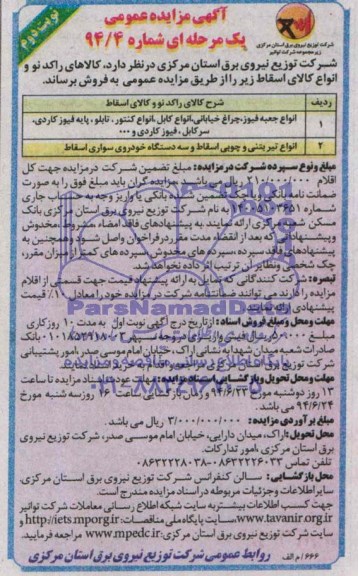 نوبت دوم
آگهی مزایده عمومی
یک مرحله ای شماره ۹۴/۴
شرکت توزیع نیروی برق استان مرکزی
شرکت توزیع نیروی برق استان مرکزی در نظر دارد، کالاهای راکد نو و
انواع کالای اسقاط زیر را از طریق مزایده عمومی به فروش برساند.
ردیف شرح کالای راکد نو و کالای اسقاط
۱ انواع جعبه فیوز، چراغ خیابانی، انواع کابل، انواع کنتور، تابلو، پایه فیوز کاردی،
سرکابل، فیوز کاردی و ...
۲ انواع تیر بتنی و چوبی اسقاط و سه دستگاه خودروی سواری اسقاط
مبلغ و نوع سپرده شرکت در مزایده: مبلغ تضمین شرکت در مزایده جهت کل
اقلام ۲۱۰/۰۰۰/۰۰۰ ریال می باشد. مزایده گران باید مبلغ فوق را به صورت
مسکن شعبه مرکزی ارائه نمایند. به پیشنهادهای فاقد امضاء، مشروط، مخدوش
و پیشنهاداتی که بعد از انقضاء مدت مقرر در فراخوان واصل شود و همچنین به
پیشنهادهای فاقد سپرده، سپرده های مخدوش، سپرده های کمتر از میزان مقرر،
چک شخصی و نظایر آن ترتیب اثر داده نخواهد شد.
تبصره: شرکت کنندگانی که تمایل به ارائه پیشنهاد قیمت جهت قسمتی از اقلام
مزایده را دارند می توانند ضمانتنامه شرکت در مزایده خود را معادل ۱۰٪ قیمت
پیشنهادی ارائه نمایند.
مهلت و محل و مبلغ فروش اسناد: از تاریخ درج آگهی نوبت اول به مدت ۱۰ روز کاری
صادرات شعبه میدان شهدا به نشانی اراک، خیابان امام موسی صدر، امور پشتیبانی
مهلت و محل تحویل و بازگشایی اسناد مزایده:
۱۳ روز دوشنبه مورخ ۹۴/۶/۲۳ و زمان بازگشایی ساعت ۱۶ روز سه شنبه مورخ
۹۴/۶/۲۴ می باشد.
مبلغ برآوردی مزایده: ۳/۰۰۰/۰۰۰/۰۰۰ ریال می باشد.
محل تحویل: اراک، میدان دارایی، خیابان امام موسی صدر، شرکت توزیع نیروی
برق استان مرکزی، امور تدارکات.
تلفن تماس ۰۸۶۳۲۲۲۶۰۳۳-۰۸۶۳۲۲۲۸۰۳۸
محل بازگشایی: سالن کنفرانس شرکت توزیع نیروی برق استان مرکزی.
سایر اطلاعات و جزئیات مربوطه در اسناد مزایده مندرج است.
جهت کسب اطلاعات بیشتر به سایت شبکه اطلاع رسانی معاملات شرکت توانیر
www.tavanir.org.ir سایت پایگاه ملی مناقصات: http://iets.mporg.ir و
سایت شرکت توزیع نیروی برق استان مرکزی: www.mpedc.ir مراجعه فرمایید.
۶۶۶/م الف روابط عمومی شرکت توزیع نیروی برق استان مرکزی